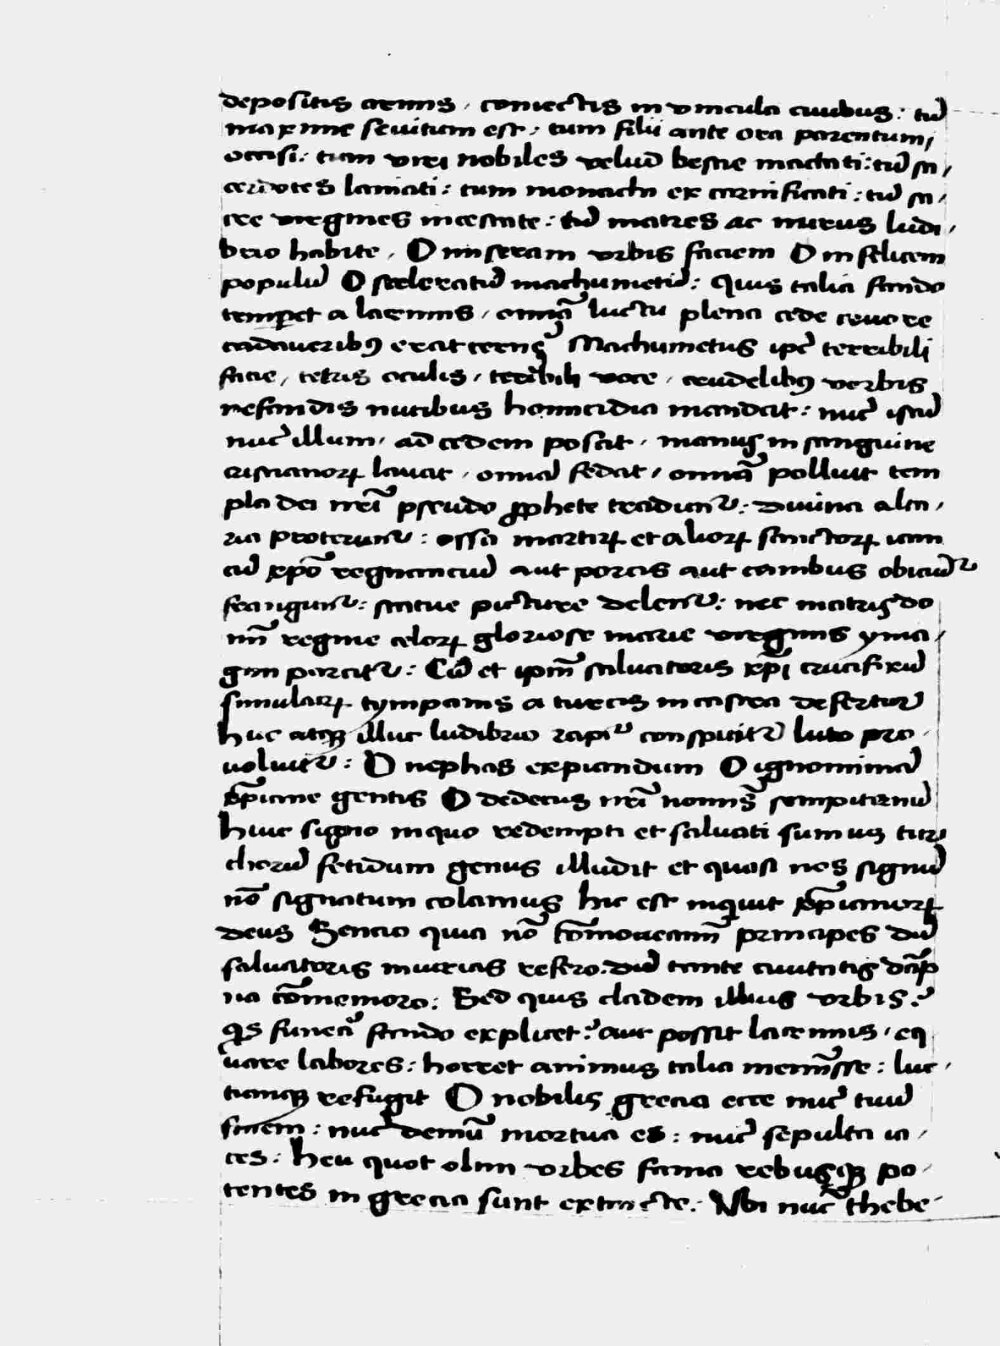 depositis armis / coniectis in vincula ciuibus: tu̅
maxime seuitum est: tum filii ante ora parentum /
occisi: tum viri nobiles velud bestie mactati: tu̅ sa /
cerdotes laniati: tum monachi excarnificati: tu̅ sa /
cre virgines incestate: tu̅ matres ac nurus ludi /
brio habite. O miseram vrbis faciem O infelicem
populu̅ O sceleratu̅ machumetu̅: Quis talia fando
temperet a lacrimis / omnia luctu plena cede cruore
cadaueribꝫ erat cerne̅ Machumetus ip̅e terribili
facie / tetris oculis / terribili voce / crudelibꝫ verbis
nefandis nutibus homicidia mandat: nu̅c istu̅
nu̅c illum / ad cedem poscit / manus in sanguine
cristianoꝝ lauat / omnia fedat / omnia polluit tem
pla dei nr̅i pseudo ꝓphete tradunt᷑: Diuina alta /
ria proterunt᷑: ossa martirꝝ et alioꝝ sanctoꝝ iam
cu̅ xp̅o regnanciu̅ aut porcis aut canibus obiciu̅t᷑
frangunt᷑: statue picture delent᷑: nec matris do
mi̅ regine celoꝝ gloriose marie virginis yma /
gini parcit᷑: Cu̅ et ip̅m saluatoris xp̅i crucifixu̅
simulacꝝ tympanis a turcis in castra defertur
huc atqꝫ illuc ludibrio rapit᷑ conspuitur luto pro /
uoluit᷑: O nephas expiandum O ignominia̅
xp̅iane gentis O dedecus nr̅i nomi̅s sempiternu̅
huic signo in quo redempti et saluati sumus tur
choru̅ fetidum genus illudit et quasi nos signu̅
no̅ signatum colamus hic est inquit xp̅ianoꝝ
deus Sencio quia no̅ co̅moueam̅ principes du̅
saluatoris iniurias refero. du̅ tante ciuitatis da̅p
na co̅memoro: Sed quis cladem illius vrbis?
q̅s funera fando explicet? aut possit lacrimis / eq
uare labores: horret animus talia memi̅sse: luc /
tuqꝫ refugit O nobilis grecia ecce nu̅c tuu̅
finem: nu̅c demu̅ mortua es: nu̅c sepulta ia /
ces: heu quot olim vrbes fama rebusqꝫ po /
tentes in grecia sunt extincte. Vbi nu̅c thebe /